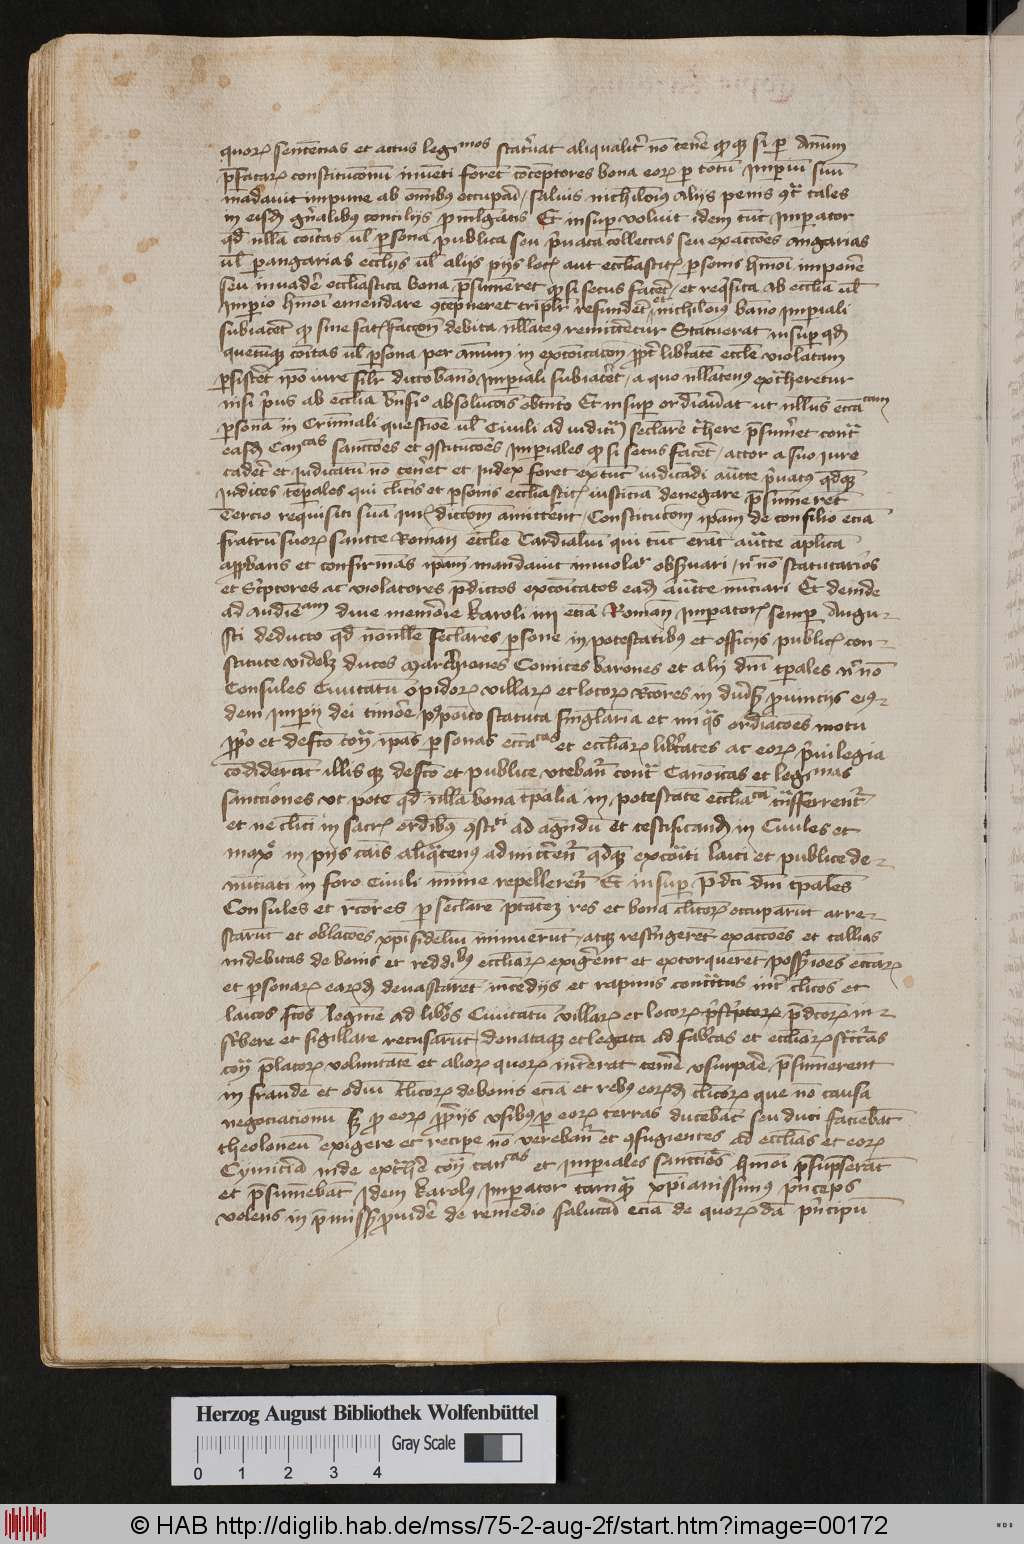 quor sentencias et actus legimos statuerat aliqualiter no tene si p Annum
constitucionu inventi forent conceptores bona eor p totu Imperiu suu
madavit impune ab omnibus occupari salvis nichilominus Alijs penis tales
in eisd gnalibus concilijs promulgatis Et insuper voluit idem tunc Imperator
qd nulla coitas ul persona publica seu privata collectas seu exacciones angarias
ul perangarias ecclijs ul alijs pijs locis aut ecclesiasticis personis hmoi imponere
seu invadere ecclesiastica bona presumerent si secus faceret et requisita ab ecclesia ul
Imperio hmoi emendare contepneret triplum refunderet et nichilominus banno Imperiali
subiaceret sine satisfaccion debita nullatenus remitteretur Statuerat insuper qd
quecunque coitas ul persona per annum in excoicacione propter libertatem ecclie violatam
persisteret ipo iure similiter dicto banno Imperiali subiaceret a quo nullatenus extraheretur
nisi prius ab ecclia absolucois obtento Et insuper ordinaverat ut nullus
persona in Criminali questione ul Civili ad iudiciu seculare trahere presumeret contra
easd sancciones et constituciones Imperiales si secus faceret actor a suo iure
caderet et iudicatum no teneret et iudex foret extunc iudicandi aucte privatus
Judices temporales qui clericis et personis ecclesiasticis iusticia denegare presumerent
Tercio requisiti sua Iurisdiccom amitterent Constitucom ipam de consilio ecia
fratru suor sancte Roman ecclie Cardialiu qui tunc erat aucte aplica
approbans et confirmans ipam mandavit inviolabiliter observari no statutarios
et Scriptores ac violatores predictos excoicatos ead aucte nunciari Et deinde
ad Audienciam dive memorie karoli iiij ecia Roman Imperator semper Augu-
sti deducto qd nonnulle seculares persone in potestatibus et officijs publicis con-
stitute videlicet duces Marchiones Comites barones et alij dni tpales no
Consules Civitatu opidor villar et locor Rectores in diversis provincijs eius-
dem Imperij dei timore postposito statuta singularia et iniquas ordinaciones motu
proprio et de facto contra ipas personas et ecclesiar libertates ac eor privilegia
condiderant illis de facto et publice utebantur contra Canonicas et legimas
sancciones ut pote qd nulla bona tpalia in potestatem transferrentur
et ne clerici in sacris ordinibus constituti ad agendu et testificand in Civiles et
maxime in pijs causis aliquatenus admitterentur excoicati laici et publice de-
nunciati in foro Civili minime repellerentur Et insuper predicti dni tpales
Consules et rectores per secularem potestatem res et bona clericor occuparunt arre-
starunt et oblaciones xpi fideliu minuerunt atque restringerent exacciones et tallias
indebitas de bonis et reddibus ecclesiar exigerent et extorquerent possessiones
et personar eard devastarent incendijs et rapinis contractus inter clericos et
laicos factos legittime ad libros Civitatu villar et locor predictor in-
scribere et sigillare recusarunt donataque et legata ad fabricas et ecclesiar structuras
contra prelator voluntate et alior quor intererat temere usurpare presumerent
in fraude et odiu clericor de bonis ecia et rebus eord clericor que no causa
negociacionu sed pro eor proprijs usibus per eor terras ducebat seu duci faciebat
theoloneu exigere et recipere no verebant et confugientes ad ecclias et eor
Cymiteria inde extrahere contra et Imperiales sancciones hmoi presumpserat
et presumebat Idem karolus Imperator tamquam xpianissimus princeps
volens in premissis providere de remedio salutari ecia de quorda principu
Herzog August Bibliothek Wolfenbüttel
Gray Scale
0 1 2 3 4
© HAB http://diglib.hab.de/mss/75-2-aug-2f/start.htm?image=00172